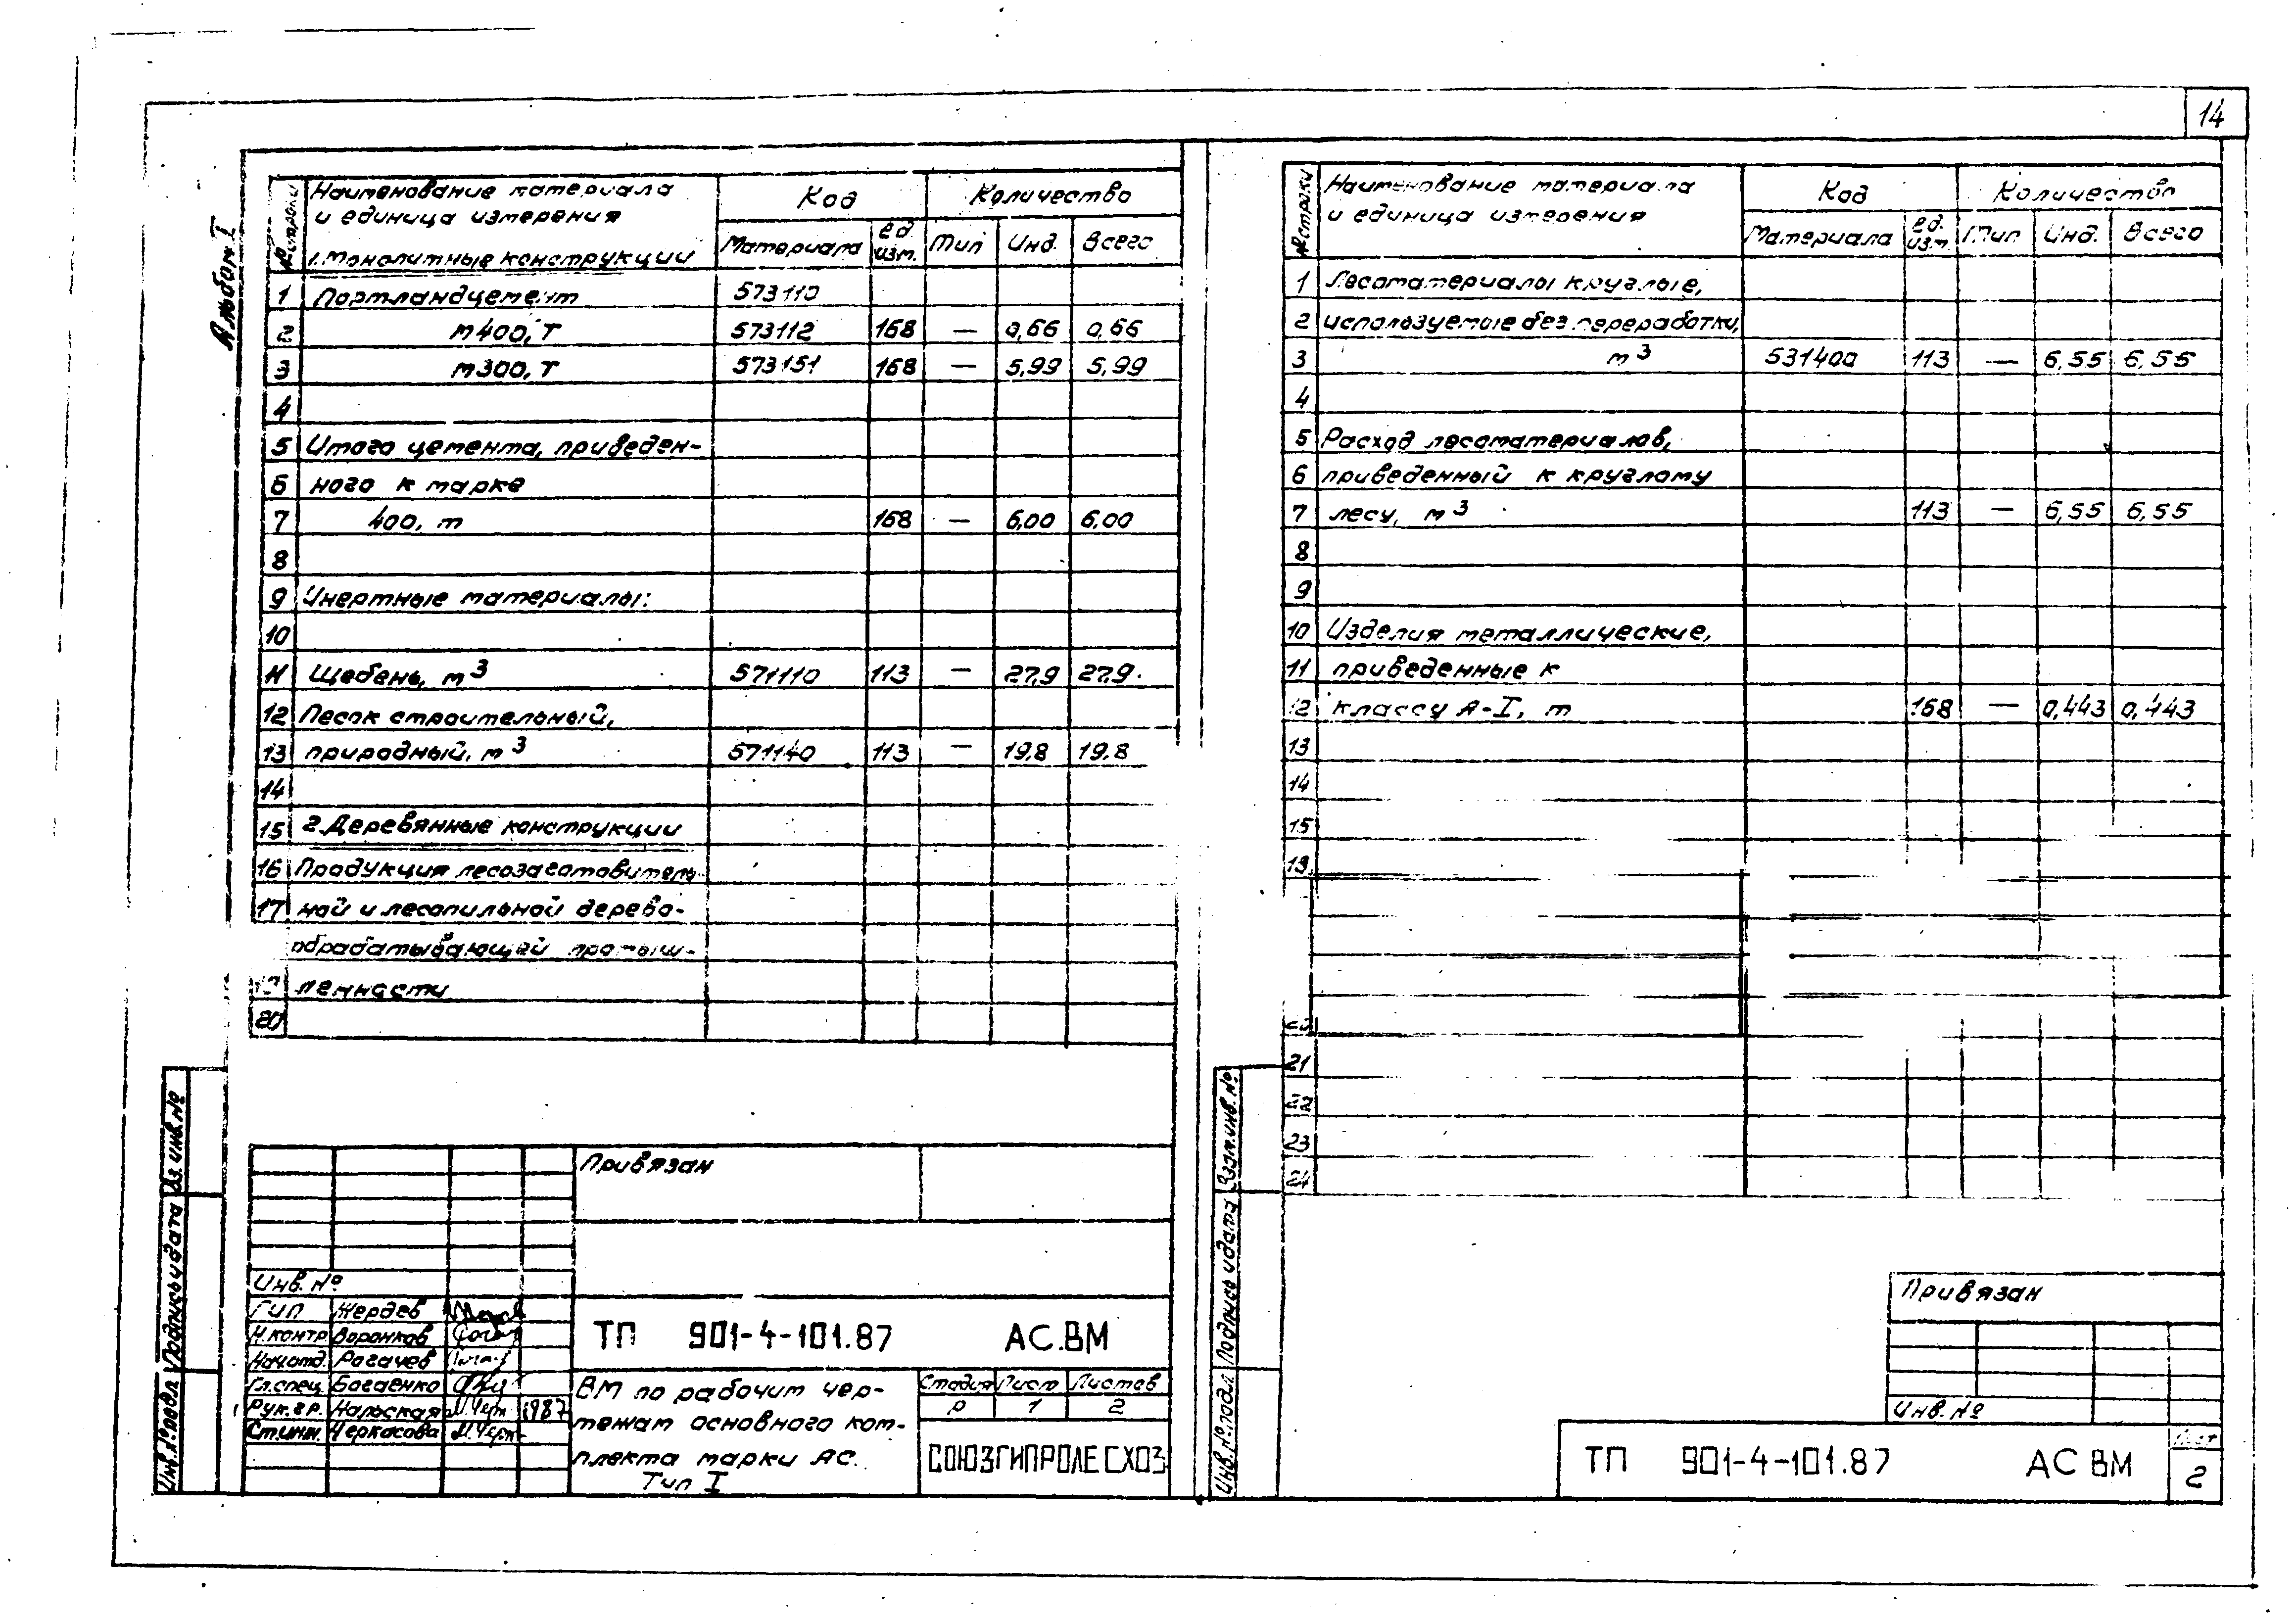 14
Альбом I
№ строки
Наименование материала
и единица измерения
1. Монолитные конструкции
Код
Количество
Материала
ед. изм.
Тип
Инд.
Всего
1 Портландцемент 573110
2 м400, Т 573112 168 — 0,66 0,66
3 м300, Т 573151 168 — 5,99 5,99
4
5 Итого цемента, приведен-
6 ного к марке
7 400, т 168 — 6,00 6,00
8
9 Инертные материалы:
10
11 Щебень, м³ 571110 113 — 27,9 27,9
12 Песок строительный,
13 природный, м³ 571140 113 — 19,8 19,8
14
15 2. Деревянные конструкции
16 Продукция лесозаготовитель-
17 ной и лесопильной дерево-
обрабатывающей промыш-
ленности
20
Привязан
Инв. №
ГИП Жердев
Н.контр. Воронков
Нач.отд. Рогачев
Гл.спец. Богаенко
Рук.гр. Нальская 1987
Ст.инж. Черкасова
ТП 901-4-101.87 АС.ВМ
ВМ по рабочим чер-
тежам основного ком-
плекта марки АС.
Тип I
Стадия Лист Листов
Р 1 2
СОЮЗГИПРОЛЕСХОЗ
Инв.№подл. Подпись и дата Вз.инв.№
№ строки
Наименование материала
и единица измерения
Код
Количество
Материала
ед. изм.
Тип
Инд.
Всего
1 Лесоматериалы круглые,
2 используемые без переработки,
3 м³ 531400 113 — 6,55 6,55
4
5 Расход лесоматериалов,
6 приведенный к круглому
7 лесу, м³ 113 — 6,55 6,55
8
9
10 Изделия металлические,
11 приведенные к
12 классу А-I, т 168 — 0,443 0,443
13
14
15
21
22
23
24
Инв.№подл. Подпись и дата Взам.инв.№
Привязан
Инв. №
ТП 901-4-101.87 АС ВМ
Лист
2